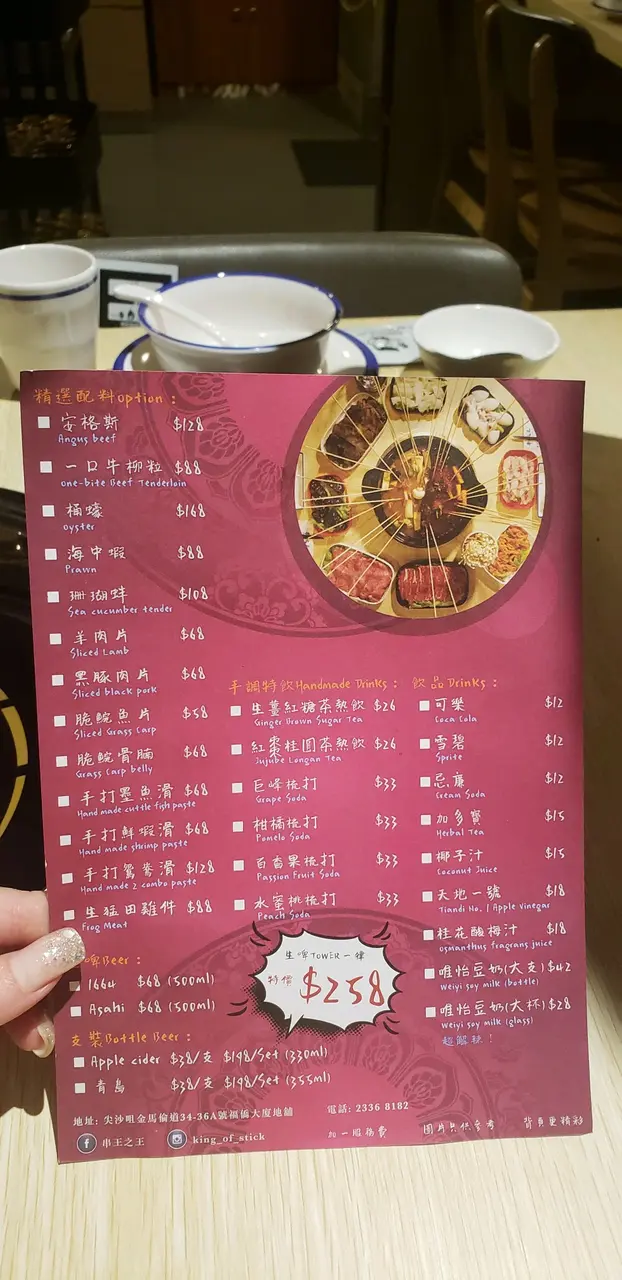 精選配料option：
安格斯 $128
Angus beef
一口牛柳粒 $88
one-bite Beef Tenderloin
桶蠔 $168
oyster
海中蝦 $88
Prawn
珊瑚蚌 $108
Sea cucumber tender
羊肉片 $68
Sliced Lamb
黑豚肉片 $68
Sliced black pork
脆鯇魚片 $58
Sliced Grass Carp
脆鯇骨腩 $68
Grass Carp belly
手打墨魚滑 $68
Hand made cuttle fish paste
手打鮮蝦滑 $68
Hand made shrimp paste
手打鴛鴦滑 $128
Hand made 2 combo paste
生猛田雞件 $88
Frog Meat
手調特飲Handmade Drinks：
生薑紅糖茶熱飲 $26
Ginger Brown Sugar Tea
紅棗桂圓茶熱飲 $26
Jujube Longan Tea
巨峰梳打 $33
Grape Soda
柑桶梳打 $33
Pomelo Soda
百香果梳打 $33
Passion Fruit Soda
水蜜桃梳打 $33
Peach Soda
飲品Drinks：
可樂 $12
Coca Cola
雪碧 $12
Sprite
忌廉 $12
Cream Soda
加多寶 $15
Herbal Tea
椰子汁 $15
Coconut Juice
天地一號 $18
Tiandi No.1 Apple Vinegar
桂花酸梅汁 $18
osmanthus fragrans juice
唯怡豆奶(大支) $42
Weiyi soy milk (bottle)
唯怡豆奶(大杯) $28
Weiyi soy milk (glass)
超解辣！
啤Beer：
1664 $68 (500ml)
Asahi $68 (500ml)
生啤TOWER一律
特價 $258
支裝Bottle Beer：
Apple cider $38/支 $198/Set (330ml)
青島 $38/支 $198/Set (355ml)
地址: 尖沙咀金馬倫道34-36A號福僑大廈地舖 電話: 2336 8182
串王之王 king_of_stick
加一服務費 圖片只供參考 背頁更精彩